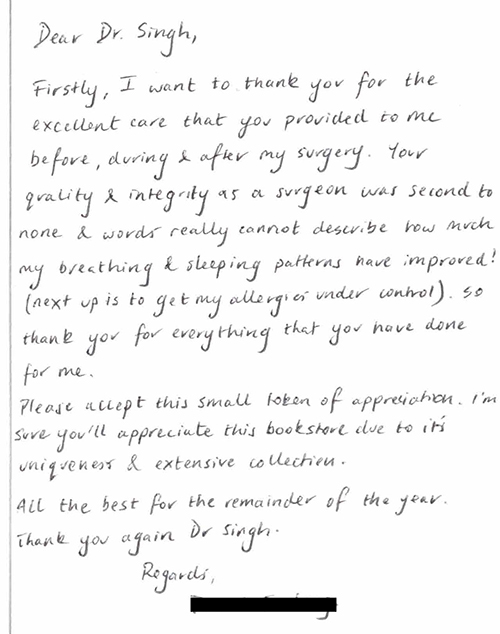 Dear Dr. Singh,
Firstly, I want to thank you for the
excellent care that you provided to me
before, during & after my surgery. Your
quality & integrity as a surgeon was second to
none & words really cannot describe how much
my breathing & sleeping patterns have improved!
(next up is to get my allergies under control). So
thank you for everything that you have done
for me.
Please accept this small token of appreciation. I'm
sure you'll appreciate this bookstore due to it's
uniqueness & extensive collection.
All the best for the remainder of the year.
Thank you again Dr Singh.
Regards,